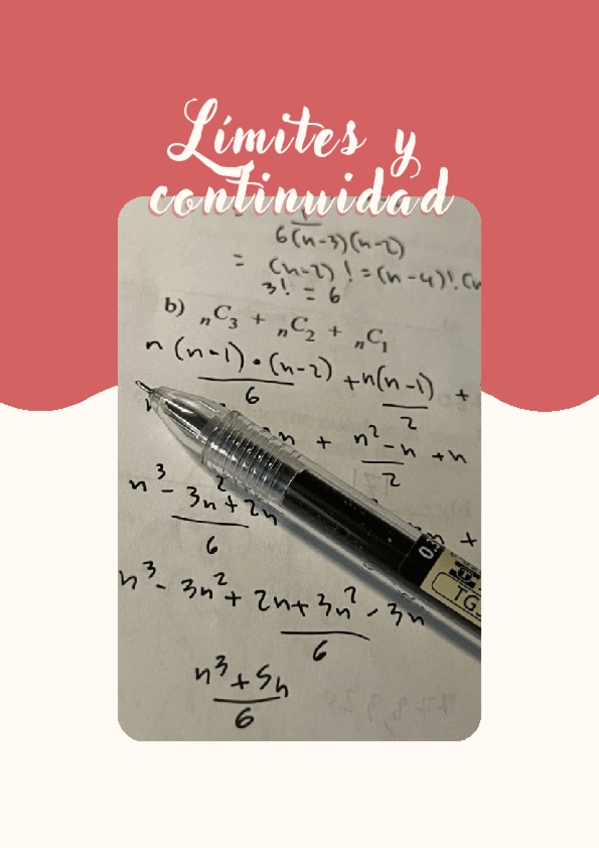 Límites y
continuidad
6(n-3)(n-2)
= (n-2)! = (n-4)!.(n
3! = 6
b) ₙC₃ + ₙC₂ + ₙC₁
n (n-1)•(n-2) + n(n-1) +
6 2
n + n²-n + n
2
n³ - 3n² + 2n
6
n +
0.
TG
n³ - 3n² + 2n + 3n² - 3n
6
n³ + 5n
6